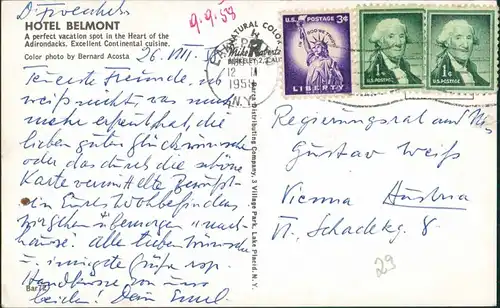 HOTEL BELMONT
A perfect vacation spot in the Heart of the
Adirondacks. Excellent Continental cuisine.
Color photo by Bernard Acosta
26. VIII. 58
9-9-58
NATURAL COLOR
Mike Roberts
BERKELEY 2, CALIF
12
1958
N.Y.
U.S. POSTAGE 3¢
IN GOD WE TRUST
LIBERTY
U.S. POSTAGE
U.S. POSTAGE
Distributing Company, 3 Village Park, Lake Placid, N.Y.
Teuerste Freunde, ich
weiß nicht, was uns
mehr erfreut hat, die
lieben guten Glückwünsche
oder das durch die schöne
Karte vermittelte
Eures Wohlbefindens
übermorgen nach-
hause. Alle lieben Wünsche
u. innigste Grüße resp.
Handküsse von uns
beiden! Dein Emil
Regierungsrat und
Gustav Weiß
Vienna Austria
VI. Schadekg. 8
29
Bar